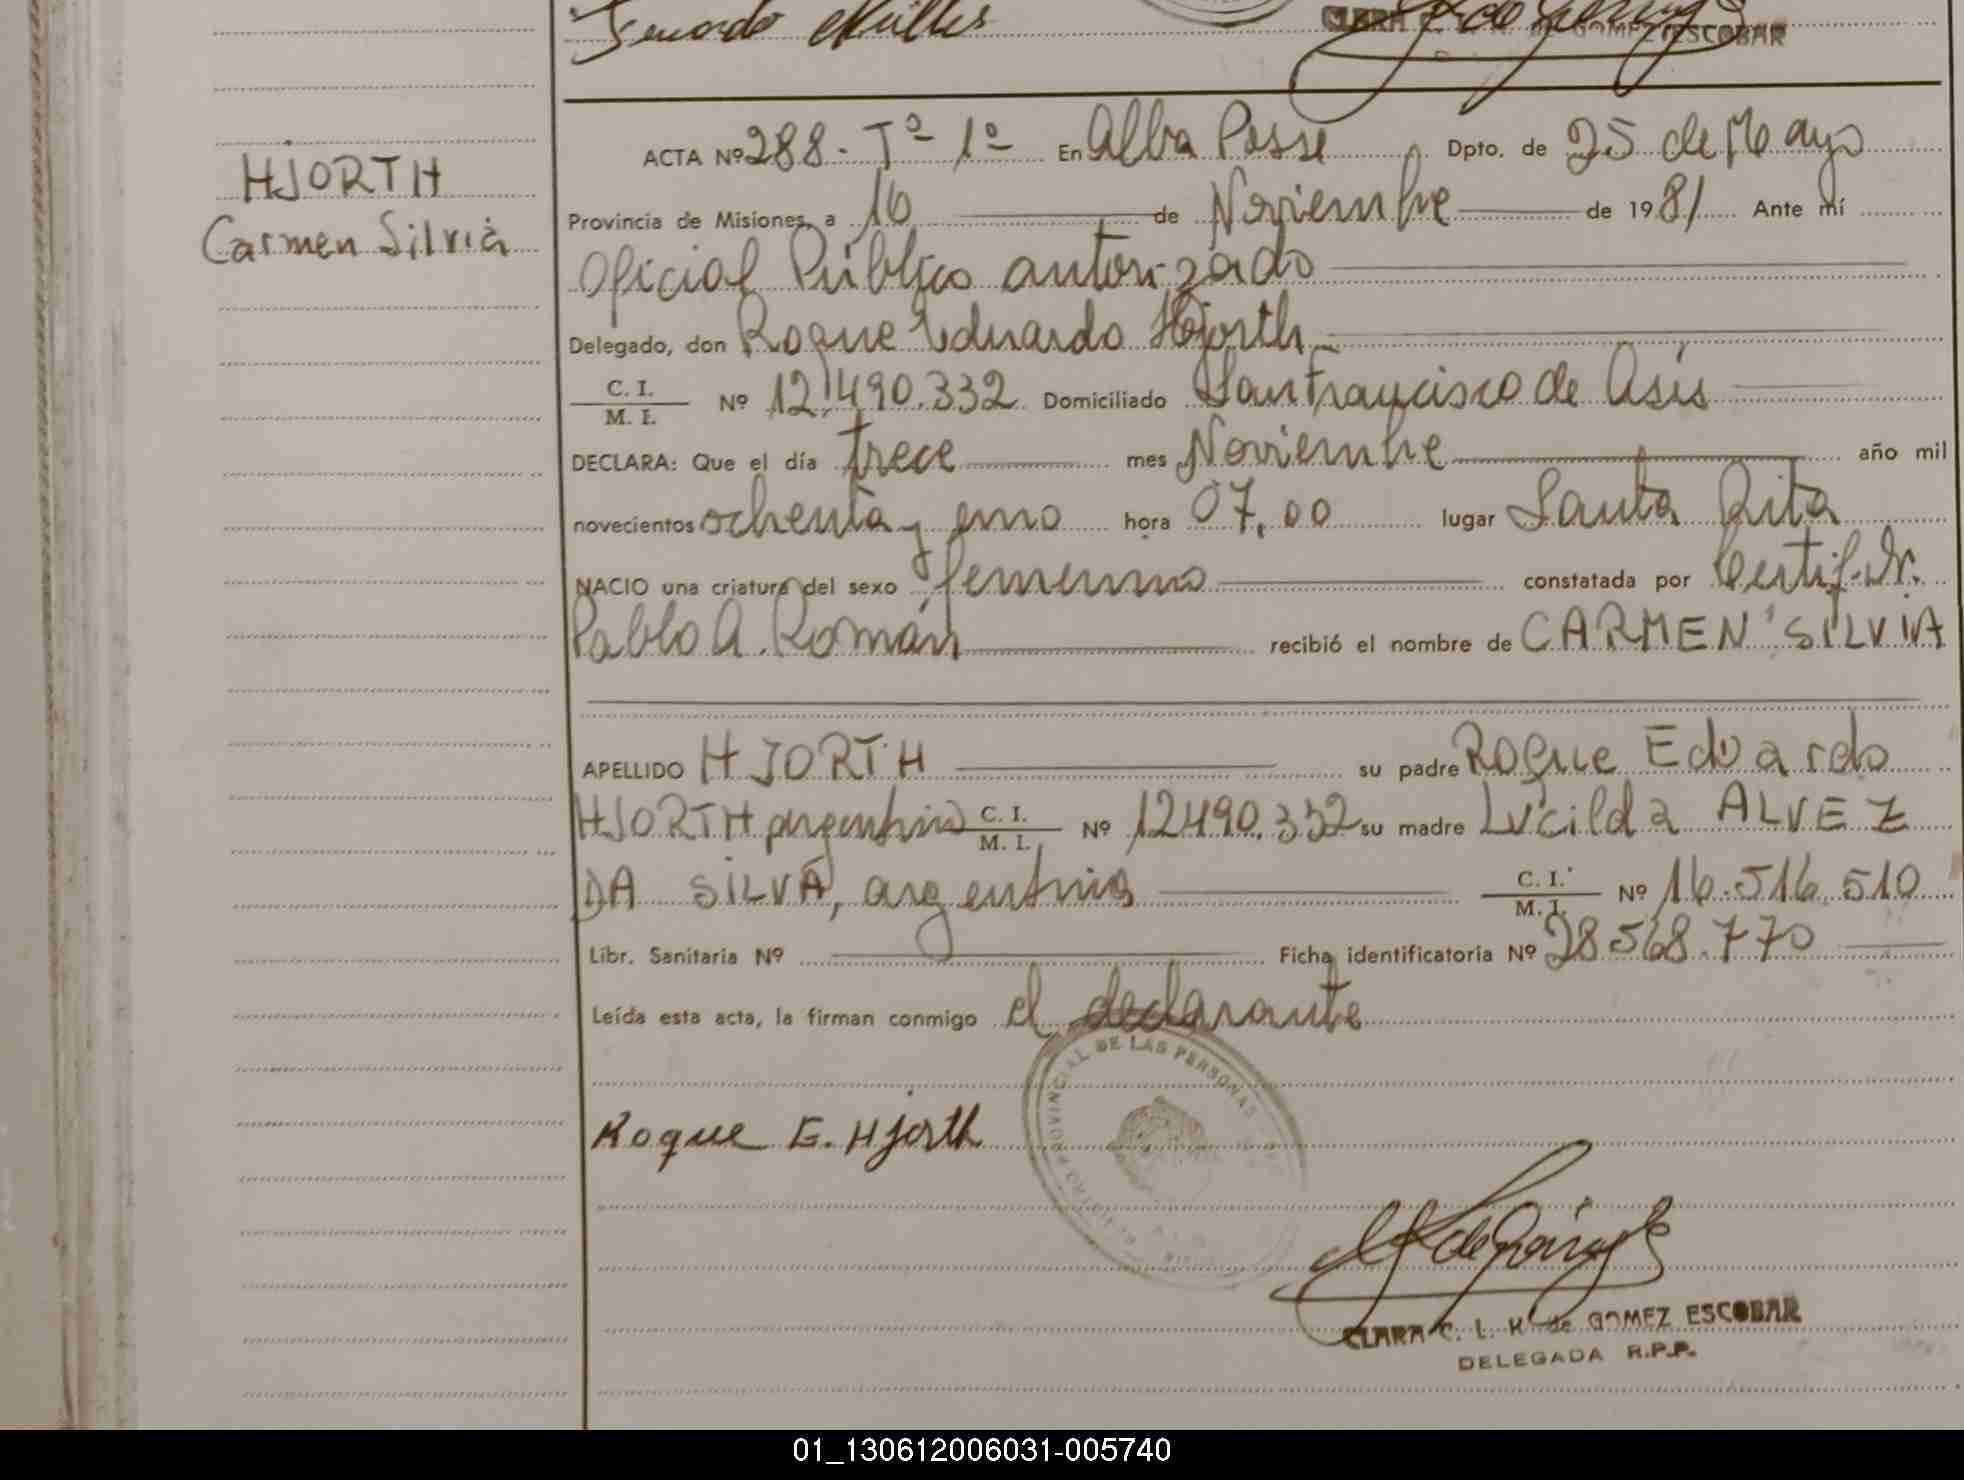 HJORTH
Carmen Silvia
CLARA C. L. K. de GOMEZ ESCOBAR
ACTA Nº 288 - Tº 1º En Alba Posse Dpto. de 25 de Mayo
Provincia de Misiones, a 16 de Noviembre de 1981 Ante mí
Oficial Público autorizado
Delegado, don Roque Eduardo Hjorth
C. I.
M. I. Nº 12.490.332 Domiciliado San Francisco de Asís
DECLARA: Que el día trece mes Noviembre año mil
novecientos ochenta y uno hora 07,00 lugar Santa Rita
NACIO una criatura del sexo femenino constatada por Certif. Dr.
Pablo A. Román recibió el nombre de CARMEN SILVIA
APELLIDO HJORTH su padre Roque Eduardo
HJORTH argentino C. I. M. I. Nº 12490.332 su madre Lucilda ALVEZ
DA SILVA, argentina C. I. M. I. Nº 16.516.510
Libr. Sanitaria Nº Ficha identificatoria Nº 28.568.770
Leída esta acta, la firman conmigo el declarante
PROVINCIAL DE LAS PERSONAS
Roque E. Hjorth
CLARA C. L. K. de GOMEZ ESCOBAR
DELEGADA R.P.P.
01_130612006031-005740